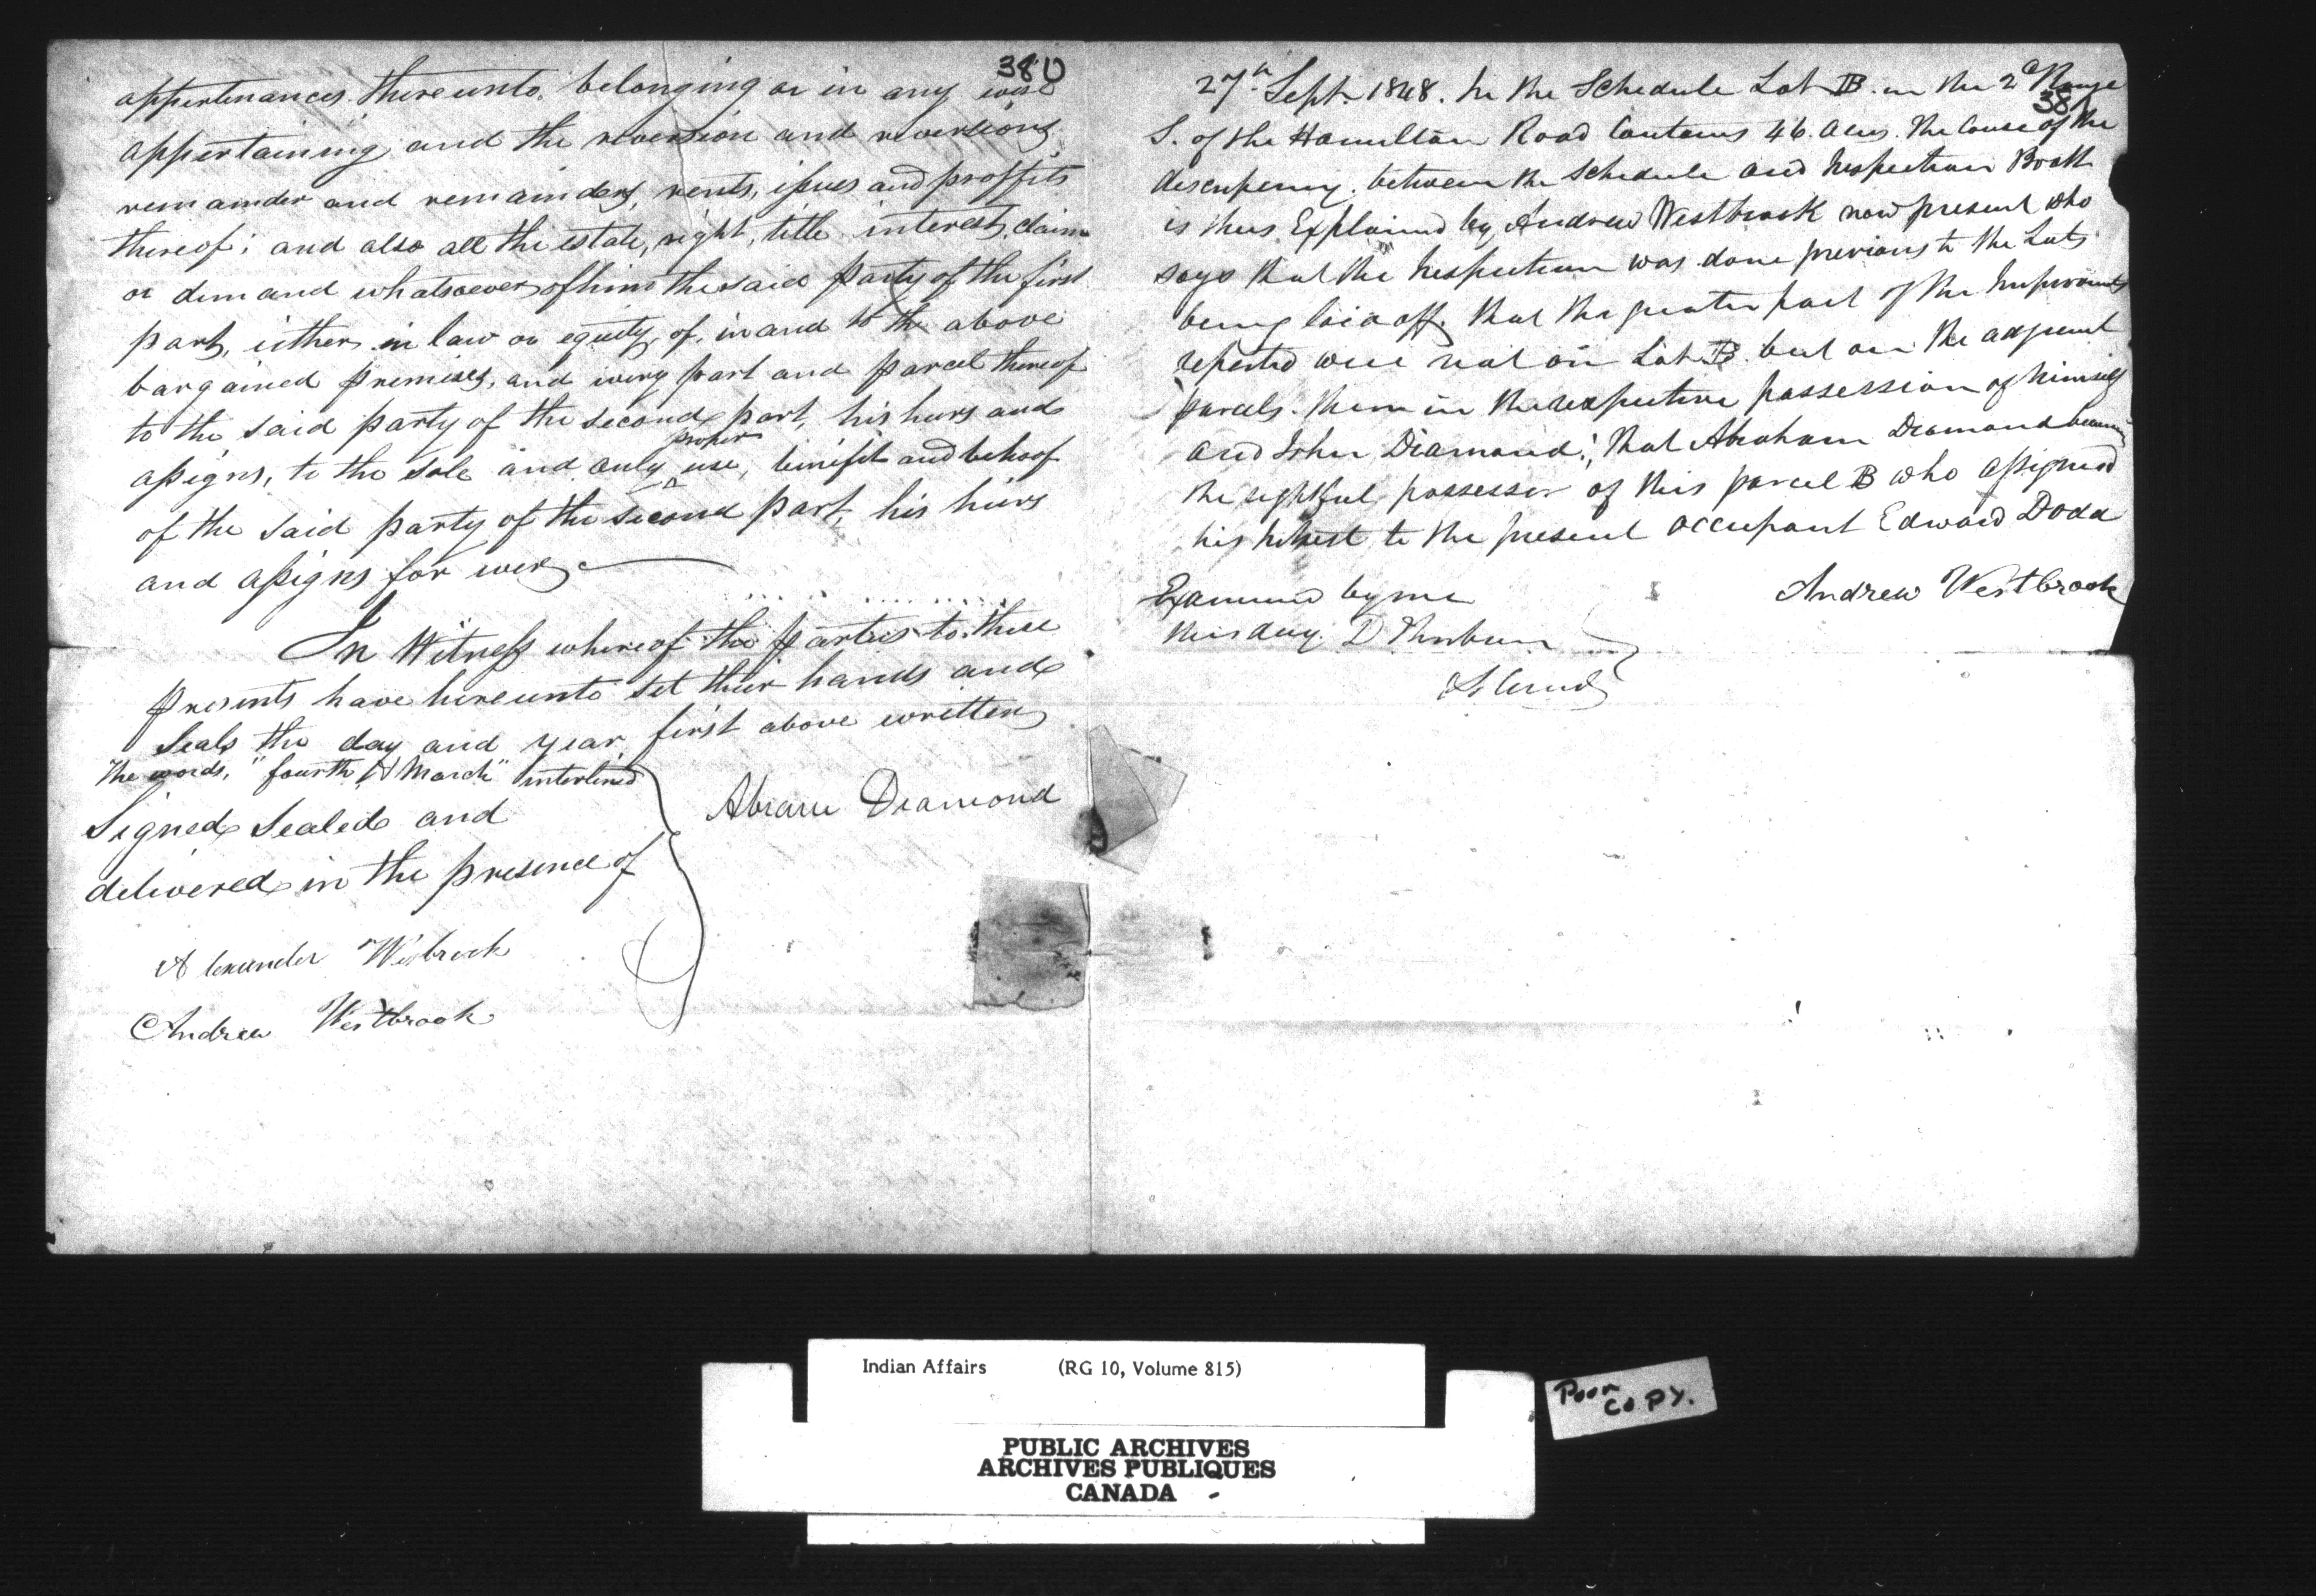 380
appertinances thereunto belonging or in any wise
appertaining, and the reversion and reversions
remainder and remainders, rents, issues and proffits
thereof; and also all the estate, right, title interest, claim
or demand whatsoever of him the said party of the first
part, either in law or equity, of, in and to the above
bargained premises, and every part and parcel thereof
to the said party of the second part, his heirs and
assigns, to the sole and only proper use, benifit and behoof
of the said party of the second part, his heirs
and assigns for ever
In Witness whereof the parties to these
presents have hereunto set their hands and
Seals the day and year first above written
The words, "fourth, March" interlined
Signed Sealed and
delivered in the presence of
Abram Diamond
Alexander Wesbrook
Andrew Westbrook
27th Sept. 1848. In the Schedule Lot B. in the 2d Range
381
S. of the Hamilton Road Contains 46. Acres. The Cause of the
discrepency. between the Schedule and Inspection Book
is thus Explained by Andrew Westbrook now present who
says that the Inspection was done previous to the Lots
being laid off. that the greater part of the Improvements
reported were not on Lot B. but on the adjacent
parcels. then in the respective possession of himself
and John Diamond; that Abraham Diamond became
the rightful possessor of this parcel B who assigned
his interest to the present occupant Edward Dodd
Examined by me
this day. D Thorburn
Andrew Westbrook
Indian Affairs (RG 10, Volume 815)
PUBLIC ARCHIVES
ARCHIVES PUBLIQUES
CANADA
Poor
COPY.